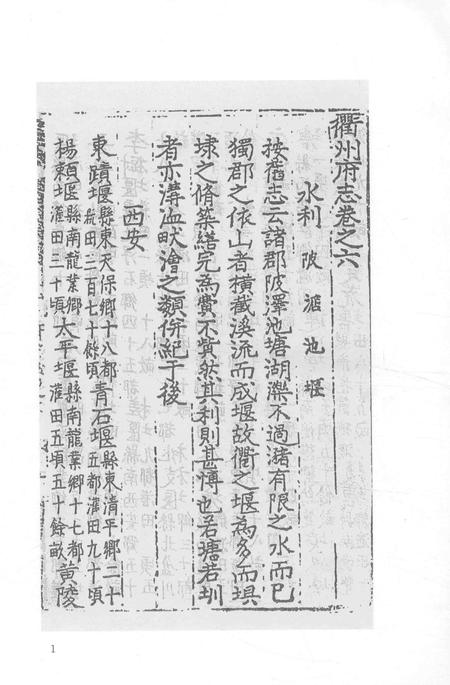 衢州府志卷之六
水利 陂 湖 池 堰
按舊志云諸郡陂澤池塘湖濼不過瀦有限之水而已
獨郡之依山者橫截溪流而成堰故衢之堰為多而埧
埭之脩築繕完為費不貲然其利則甚博也若塘若圳
者亦溝洫畎澮之類併紀于後
西安
東蹟堰縣東天保鄉十八都㽵田二百七十餘頃青石堰縣東清平鄉二十五都灌田九十頃
楊頭堰縣南龍業鄉東北灌田三十頃太平堰縣南龍業鄉十七都灌田五頃五十餘畝黃陵
1